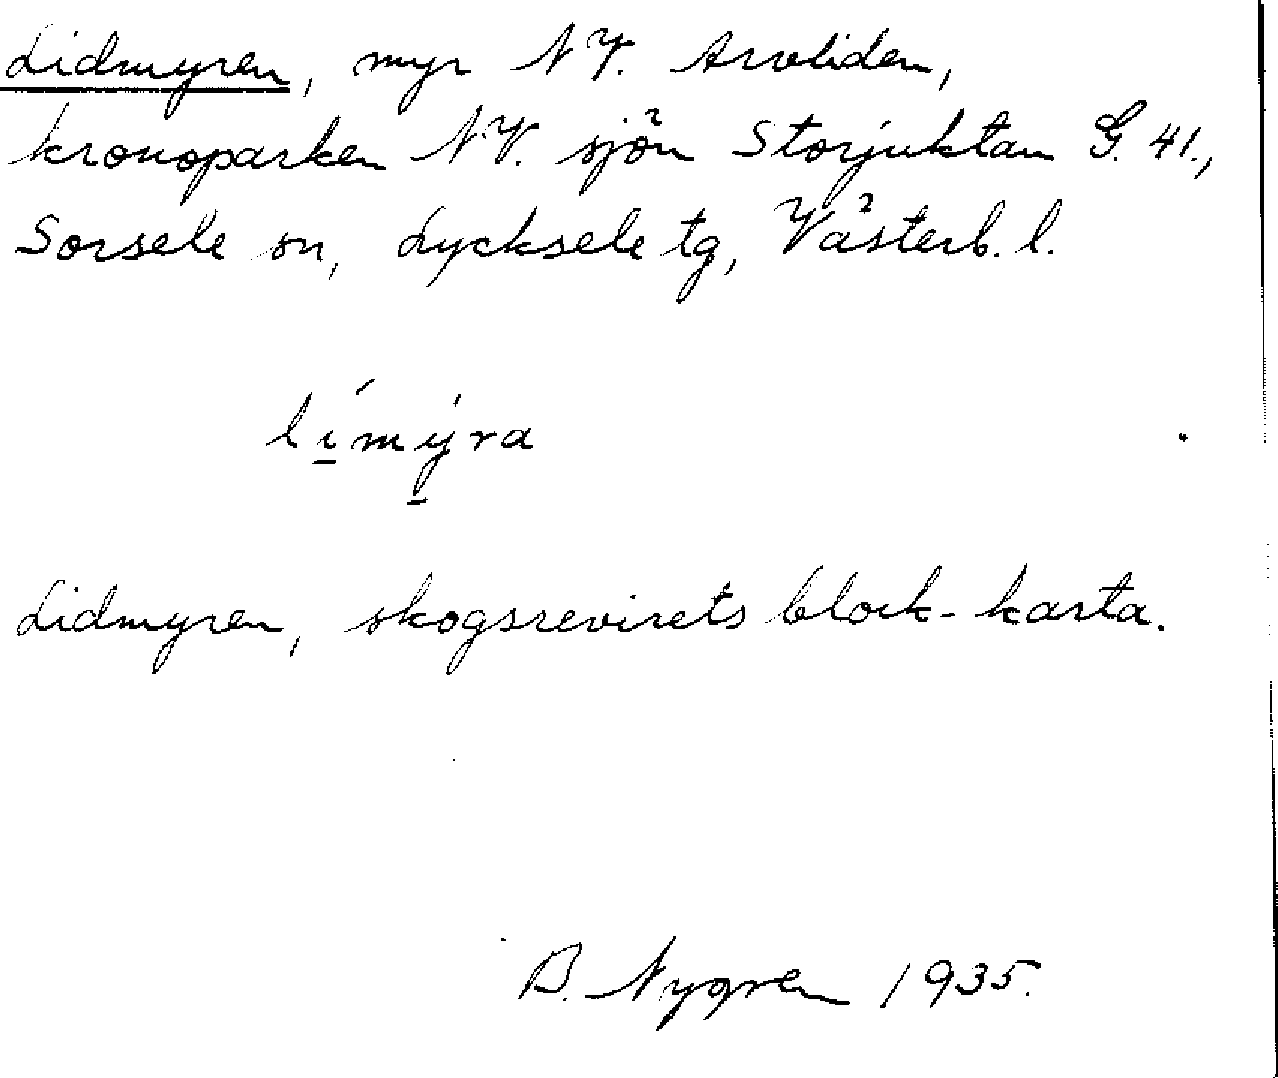 Lidmyren, myr NV. Arvliden,
kronoparken NV. sjön Storjuktan G. 41.,
Sorsele sn, Lycksele tg, Västerb. l.
lí̱mý̱ra
Lidmyren, skogsrevirets block-karta.
B. Nygren 1935.